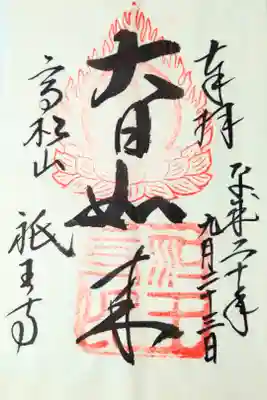 奉拝
平成二十年
九月二十三日
大日如来
高松山
祇王寺